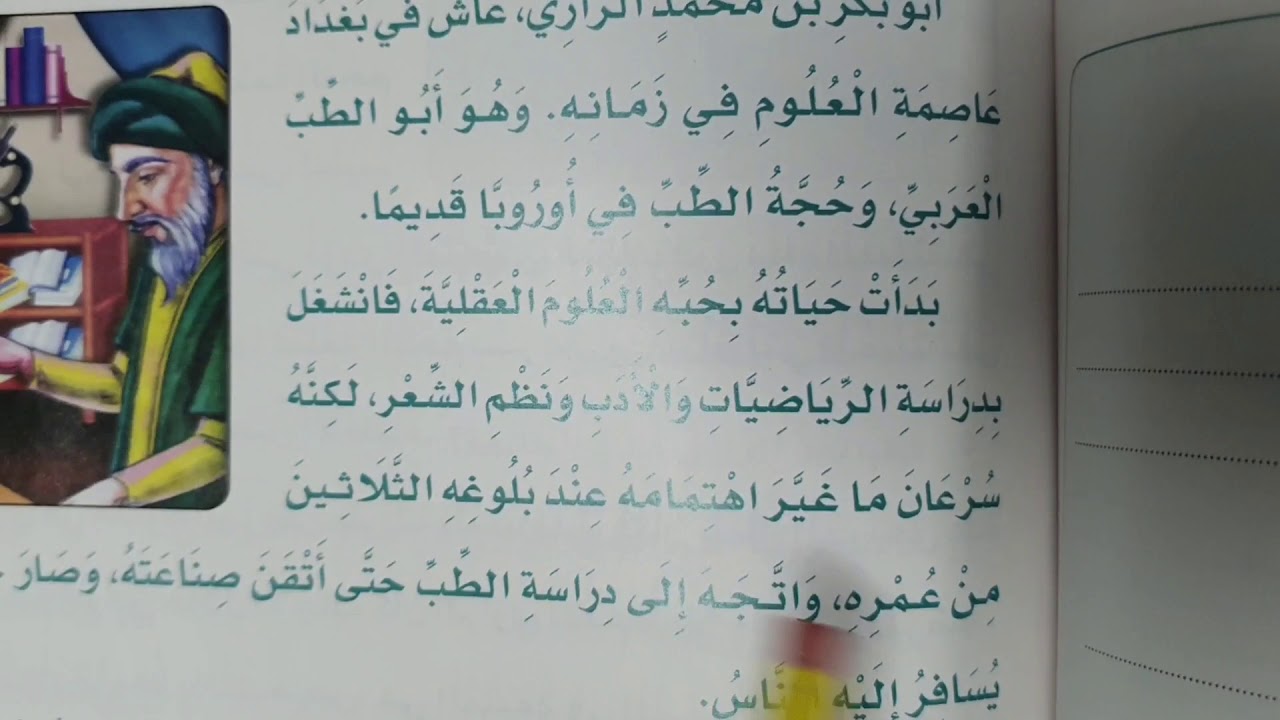 أبو بكر بن محمدٍ الرازي، عاش في بغداد
عَاصِمَةِ الْعُلُومِ فِي زَمَانِهِ. وَهُوَ أَبُو الطِّبِّ
الْعَرَبِيِّ، وَحُجَّةُ الطِّبِّ فِي أُورُوبَّا قَدِيمًا.
بَدَأَتْ حَيَاتُهُ بِحُبِّهِ الْعُلُومَ الْعَقْلِيَّةَ، فَانْشَغَلَ
بِدِرَاسَةِ الرِّيَاضِيَّاتِ وَالْأَدَبِ وَنَظْمِ الشِّعْرِ، لَكِنَّهُ
سُرْعَانَ مَا غَيَّرَ اهْتِمَامَهُ عِنْدَ بُلُوغِهِ الثَّلَاثِينَ
مِنْ عُمْرِهِ، وَاتَّجَهَ إِلَى دِرَاسَةِ الطِّبِّ حَتَّى أَتْقَنَ صِنَاعَتَهُ، وَصَارَ
يُسَافِرُ إِلَيْهِ النَّاسُ.